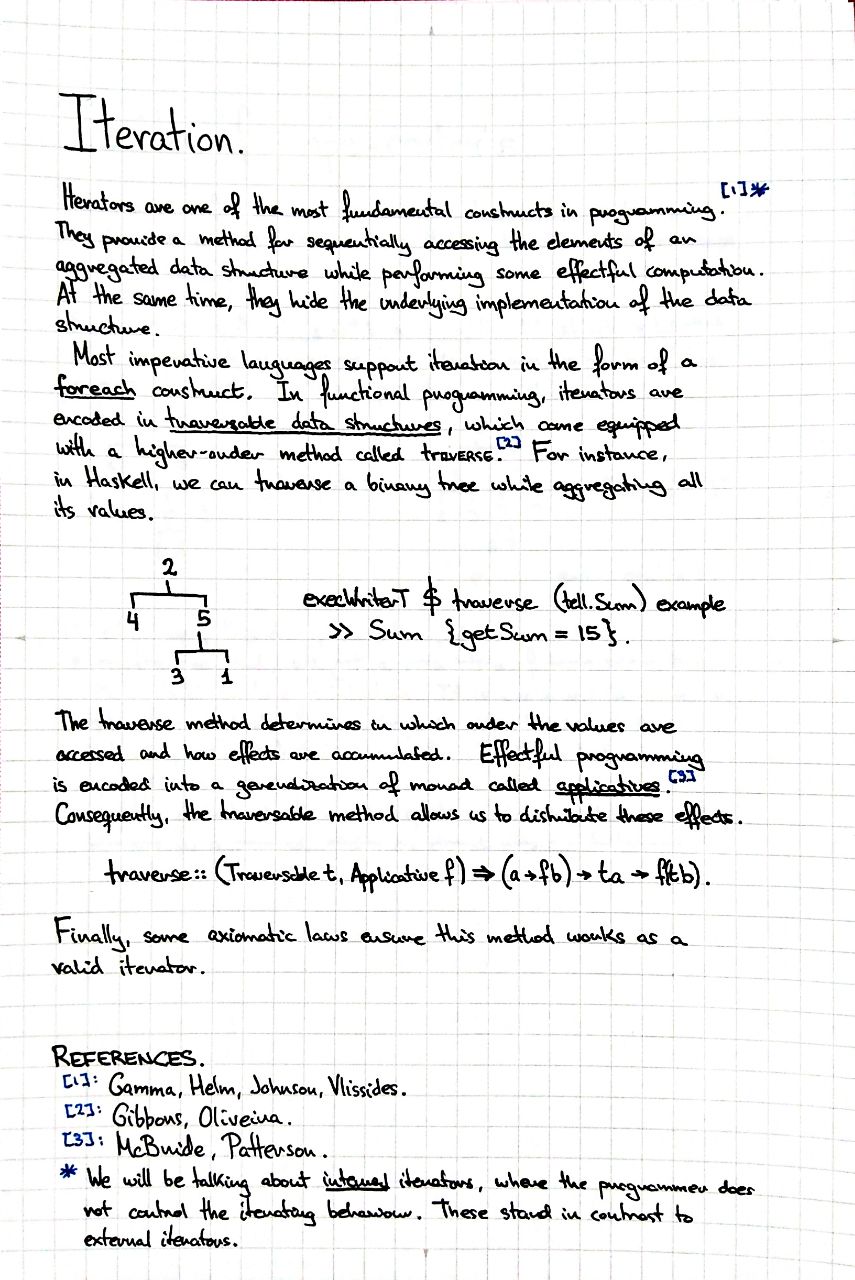 Iteration.
Iterators are one of the most fundamental constructs in programming.[1]*
They provide a method for sequentially accessing the elements of an
aggregated data structure while performing some effectful computation.
At the same time, they hide the underlying implementation of the data
structure.
Most imperative languages support iteration in the form of a
foreach construct. In functional programming, iterators are
encoded in traversable data structures, which come equipped
with a higher-order method called TRAVERSE.[2] For instance,
in Haskell, we can traverse a binary tree while aggregating all
its values.
2
4 5
3 1
execWriterT $ traverse (tell.Sum) example
>> Sum {getSum = 15}.
The traverse method determines in which order the values are
accessed and how effects are accumulated. Effectful programming
is encoded into a generalization of monad called applicatives.[3]
Consequently, the traversable method allows us to distribute these effects.
traverse :: (Traversable t, Applicative f) ⇒ (a → f b) → t a → f(t b).
Finally, some axiomatic laws ensure this method works as a
valid iterator.
REFERENCES.
[1]: Gamma, Helm, Johnson, Vlissides.
[2]: Gibbons, Oliveira.
[3]: McBride, Patterson.
* We will be talking about internal iterators, where the programmer does
not control the iterating behaviour. These stand in contrast to
external iterators.